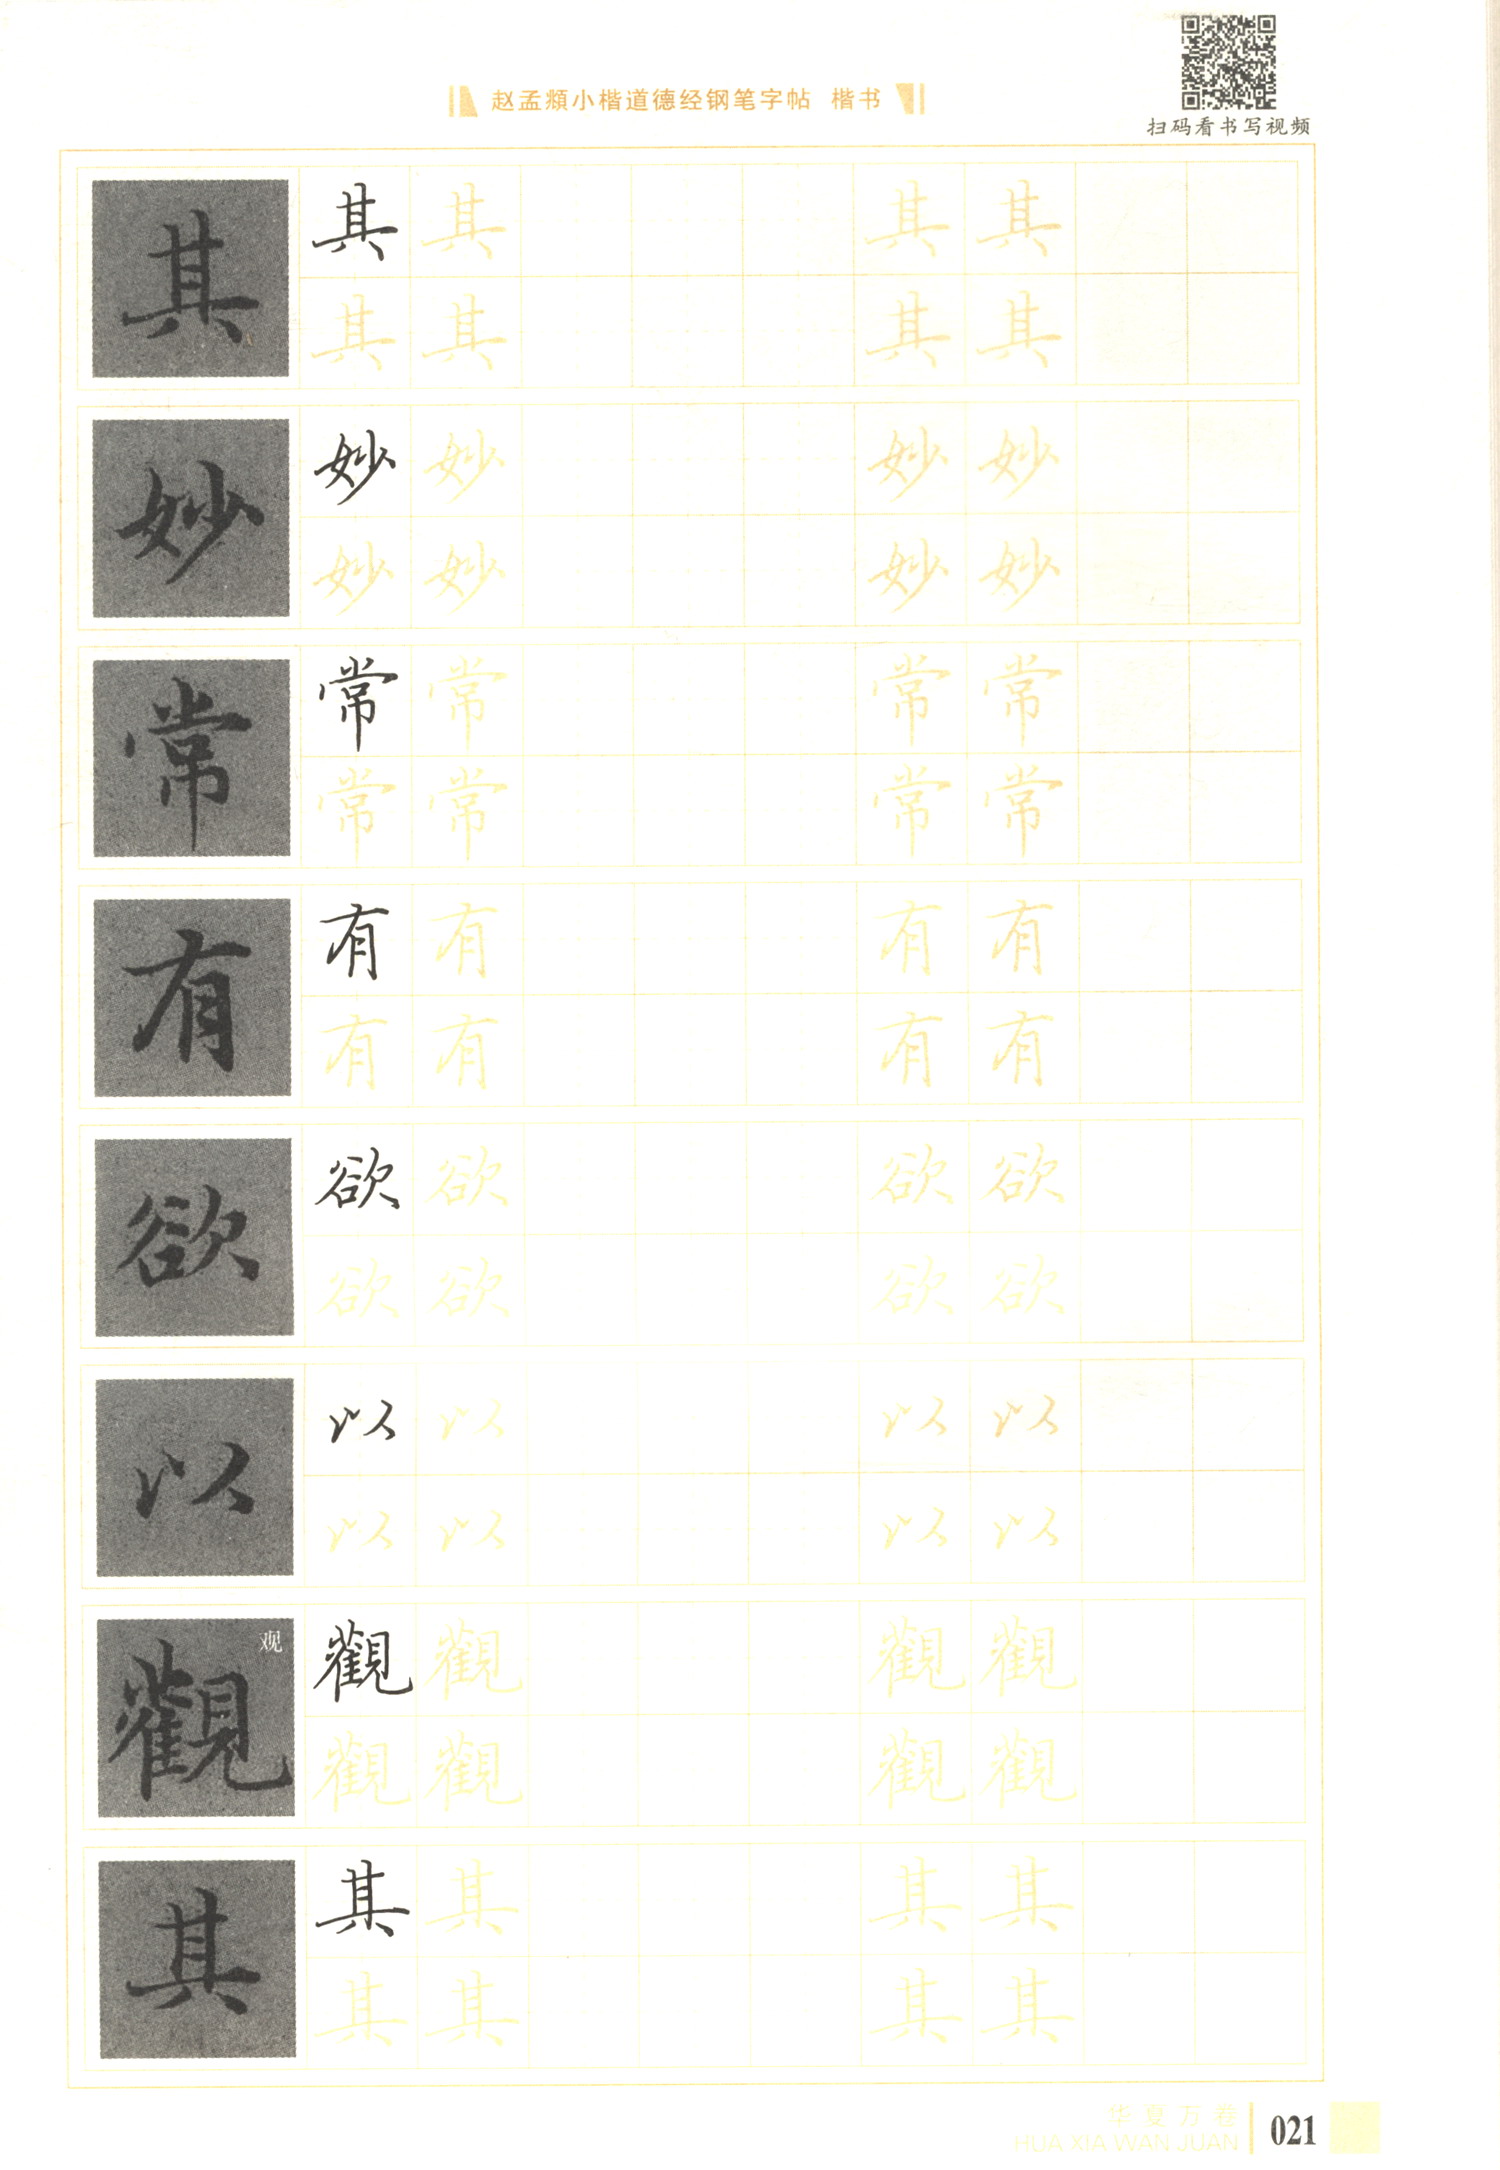 赵孟頫小楷道德经钢笔字帖 楷书
扫码看书写视频
其 其 其 其 其
其 其 其 其
妙 妙 妙 妙 妙
妙 妙 妙 妙
常 常 常 常 常
常 常 常 常
有 有 有 有 有
有 有 有 有
欲 欲 欲 欲 欲
欲 欲 欲 欲
以 以 以 以 以
以 以 以 以
觀 观 觀 觀 觀 觀
觀 觀 觀 觀
其 其 其 其 其
其 其 其 其
华夏万卷
HUA XIA WAN JUAN
021